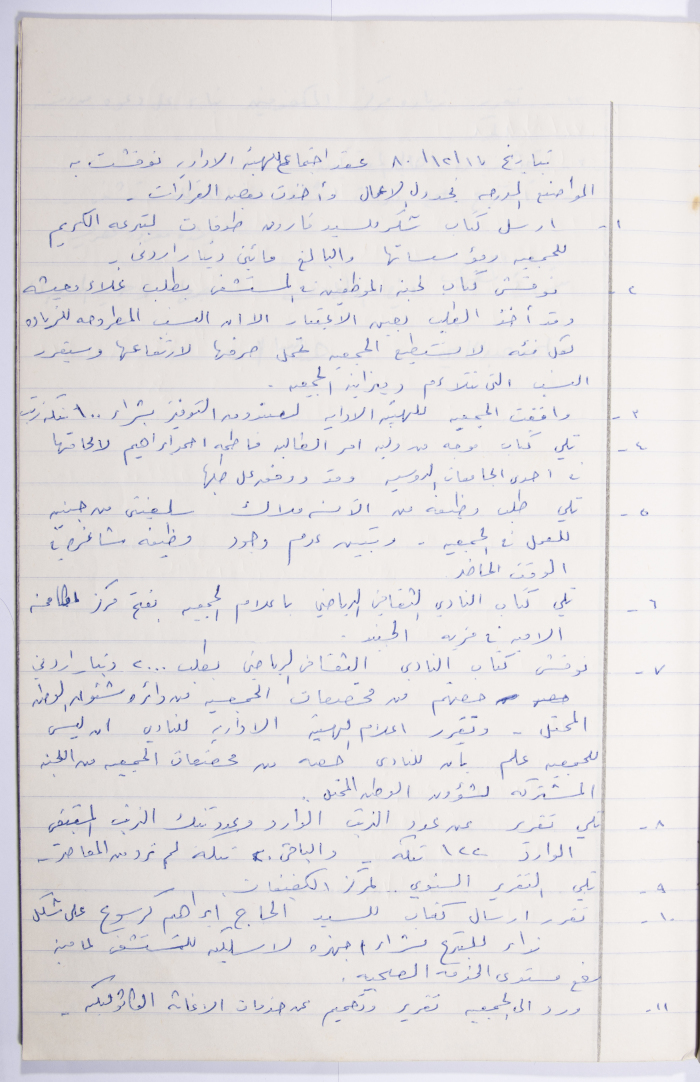 بتاريخ ٨٠/١٢/١٦ عقد اجتماع للهيئة الادارية نوقشت به
المواضيع المدرجه بجدول الاعمال وأخذت بعض القرارات -
١- ارسل كتاب شكر للسيد فاروق طوقات لتبرعه الكريم
للجمعيه ومؤسساتها والبالغ مائتي دينار اردني -
٢- نوقش كتاب لجنة الموظفين في المستشفى بطلب علاء معيشه
وقد أخذ الطلب بعين الاعتبار الا ان النسب المطروحه للزياده
لكل فئه لا تستطيع الجمعيه تحمل صرفها لارتفاعها وسيتقرر
النسب التي تتلاءم وميزانية الجمعيه .
٣- وافقت الجمعيه للهيئة الادارية لصندوق التوفير بشراء ١٠٠ تنكة زيت
٤- تلي كتاب موجه من وليه امر الطالبه فاطمه احمد ابراهيم لالحاقها
في احدى الجامعات الروسيه وقد ووفق على طلبها
٥- تلي طلب وظيفه من الآنسه ملاك سلفيتي من جنيد
للعمل في الجمعيه - وتبين عدم وجود وظيفه شاغره في
الوقت الحاضر
٦- تلي كتاب النادي الثقافي الرياضي باعلام الجمعيه بفتح مركز لمكافحة
الاميه في قريه الجنيد .
٧- نوقش كتاب النادي الثقافي الرياضي بطلب ٢٠٠٠ دينار اردني
حصتهم من مخصصات الجمعيه من دائرة شئون الوطن
المحتل - وتقرر اعلام الهيئة الادارية للنادي ان ليس
للجمعيه علم بان للنادي حصه من مخصصات الجمعيه من اللجنه
المشتركه لشؤون الوطن المحتل .
٨- تلي تقرير عن عدد الزيت الوارد وعدد تنك الزيت المتبقي
الوارد ١٢٢ تنكه - والباقي ٢٠ تنكه لم ترد من المعاصر -
٩- تلي التقرير السنوي لمركز الكفيفات
١٠- تقرر ارسال كتاب للسيد الحاج ابراهيم كرسوع على شكل
نداء للتبرع لشراء اجهزه لاسلكيه للمستشفى لما فيه
رفع مستوى الخدمة الصحيه .
١١- ورد الى الجمعيه تقرير وتصميم عن خدمات الاغاثة الكاثوليكيه -